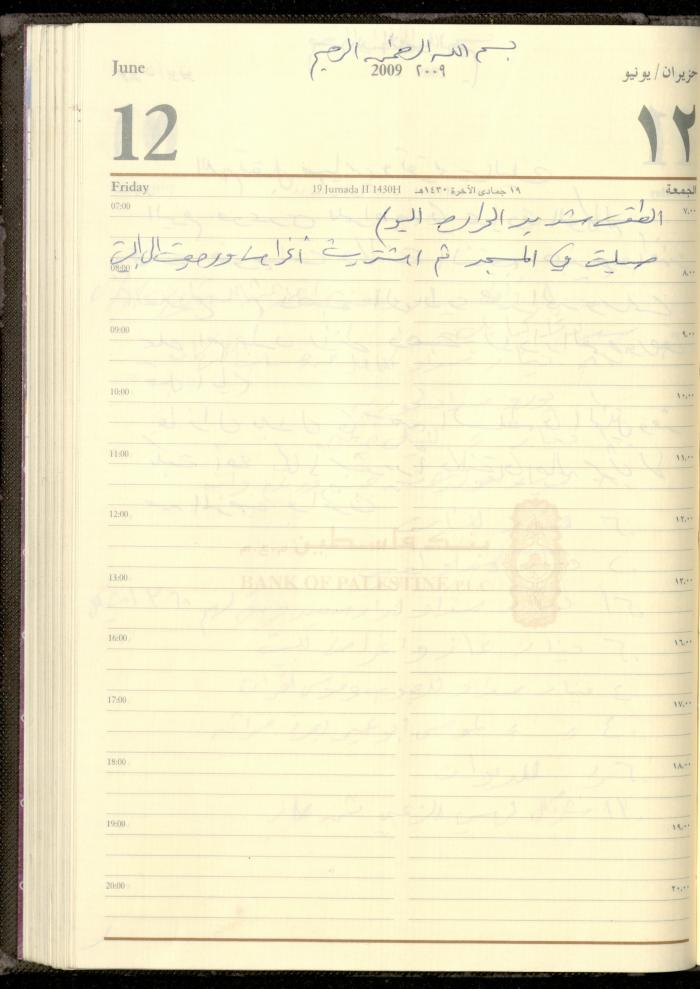 بسم الله الرحمن الرحيم
June 2009 ٢٠٠٩ حزيران / يونيو
12 ١٢
Friday 19 Jumada II 1430H ١٩ جمادى الآخرة ١٤٣٠هـ الجمعة
07:00 ٧,٠٠
الطقس شديد الحرارة اليوم
صليت في المسجد ثم اشتريت أغراضا وعدت إلى البيت
08:00 ٨,٠٠
09:00 ٩,٠٠
10:00 ١٠,٠٠
11:00 ١١,٠٠
12:00 ١٢,٠٠
بنك فلسطين
BANK OF PALESTINE PLC
13:00 ١٣,٠٠
16:00 ١٦,٠٠
17:00 ١٧,٠٠
18:00 ١٨,٠٠
19:00 ١٩,٠٠
20:00 ٢٠,٠٠